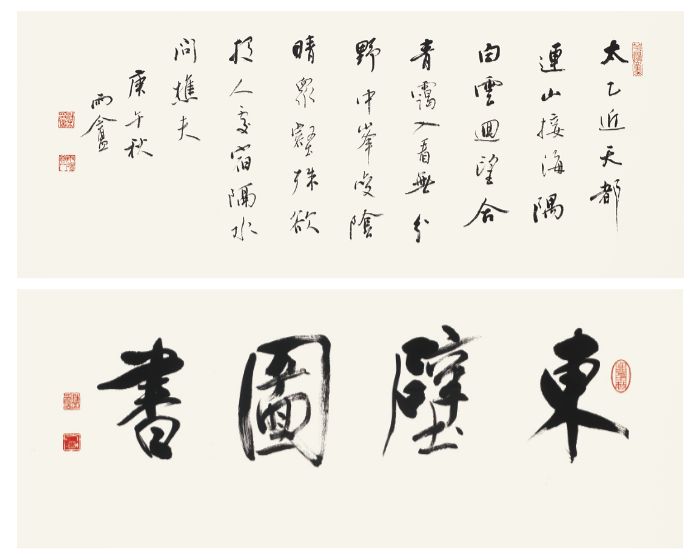 太乙近天都
連山接海隅
白雲迴望合
青靄入看無分
野中峯變陰
晴眾壑殊欲
投人處宿隔水
問樵夫
庚午秋
雨盦
東壁圖書